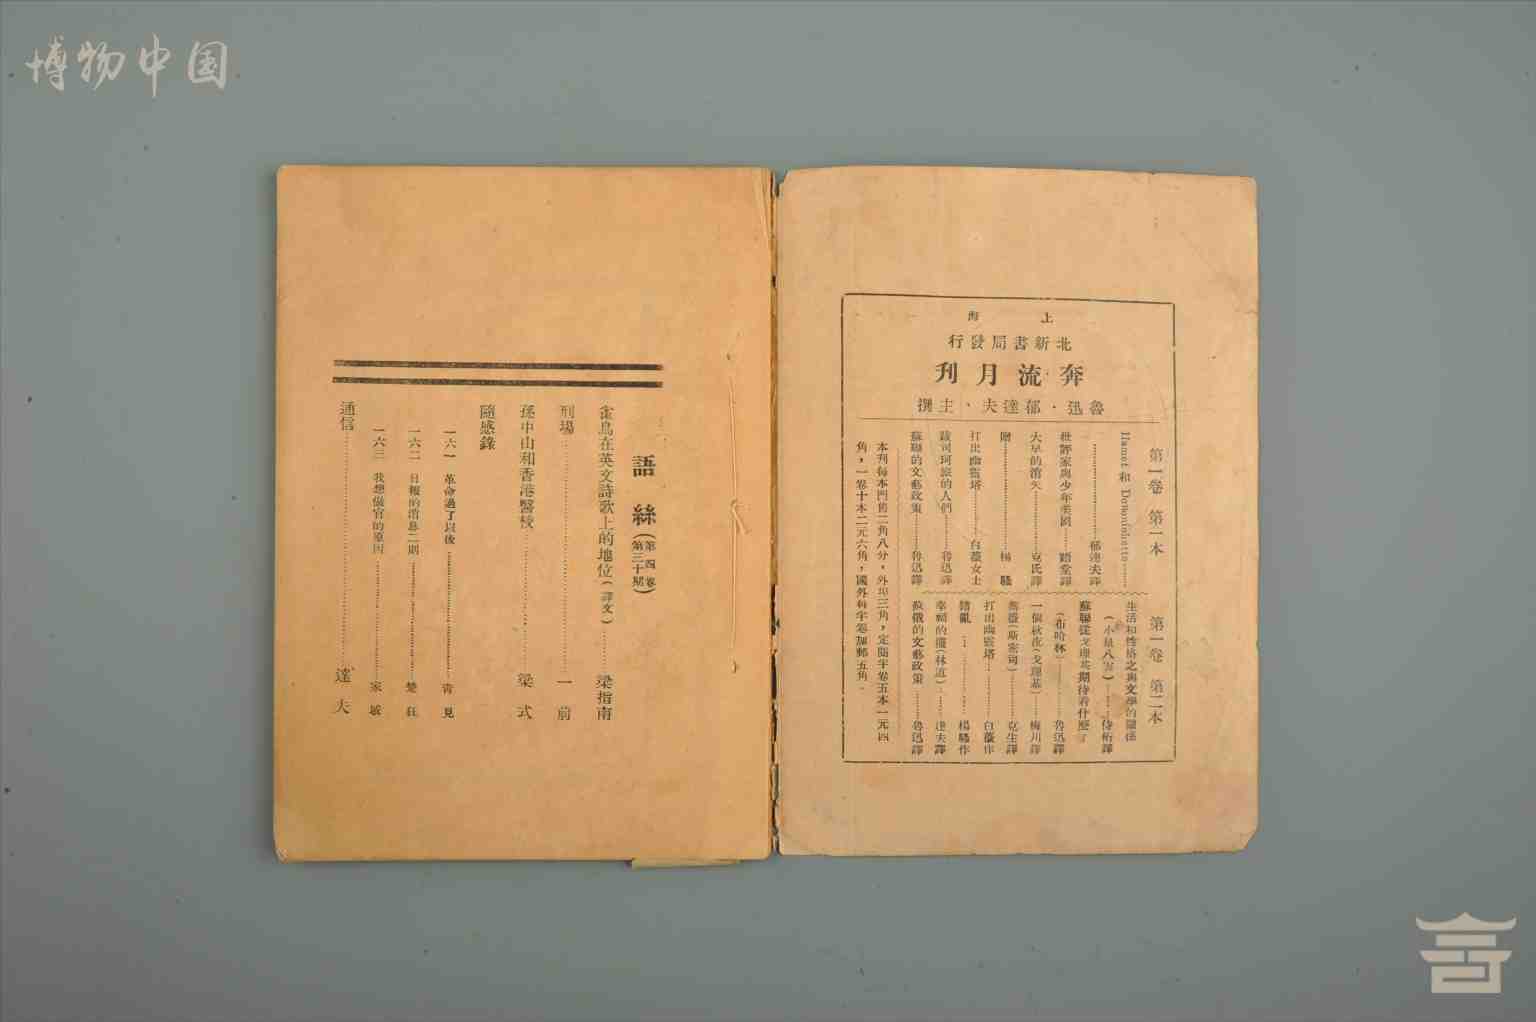 博物中国
上海
北新書局發行
奔流月刊
魯迅·郁達夫、主撰
第一卷 第一本
Hamet 和 Donquichotte……
……郁達夫譯
批評家與少年美國……語堂譯
大旱的消失……克氏譯
贈……楊騷
打出幽靈塔……白薇女士
跋司珂族的人們……魯迅譯
蘇聯的文藝政策……魯迅譯
第一卷 第二本
生活和性格之與文學的關係
(小泉八雲)……侍桁譯
蘇聯從戈理基期待着什麼?
(布哈林)……魯迅譯
一個秋夜(戈理基)……梅川譯
薔薇(斯密司)……克生譯
打出幽靈塔……白薇作
錯亂……楊騷作
幸福的擺(林道)…達夫譯
蘇俄的文藝政策……魯迅譯
本刊每本門售二角八分，外埠三角，定閱半卷五本一元四
角，一卷十本二元六角，國外每半卷加郵五角．
語絲(第四卷 第三十期)
雀鳥在英文詩歌上的地位(譯文)……梁指南
刑場……一前
孫中山和香港醫校……梁式
隨感錄
一六一 革命過了以後……青見
一六二 日報的消息二則……楚狂
一六三 我想做官的原因……家斌
通信……達夫